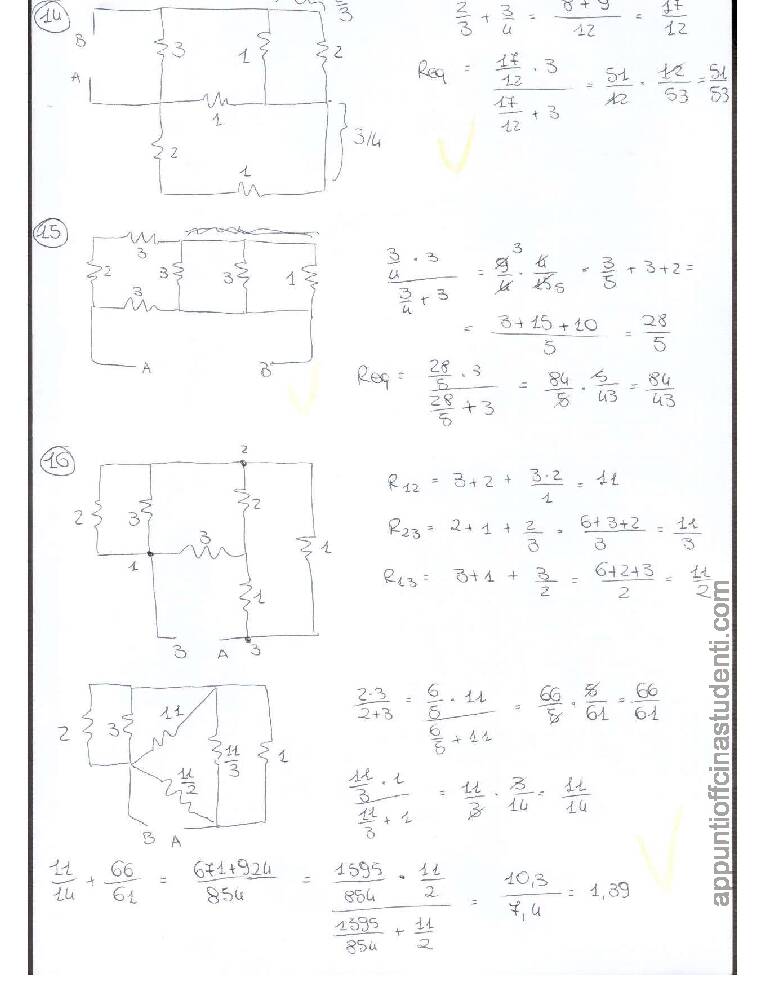 14
3
B
3
1
2
A
1
3/4
2
1
2/3 + 3/4 = 8+9/12 = 17/12
Req = (17/12 · 3)/(17/12 + 3) = 51/12 · 12/53 = 51/53
15
3
2
3
3
1
3
A
B
(3/4 · 3)/(3/4 + 3) = 9/4 · 4/15 = 3/5 + 3 + 2 =
= 3+15+10/5 = 28/5
Req = (28/5 · 3)/(28/5 + 3) = 84/5 · 5/43 = 84/43
16
2
2
3
2
3
1
1
1
B
A
3
R12 = 3+2 + 3·2/1 = 11
R23 = 2+1 + 2/3 = 6+3+2/3 = 11/3
R13 = 3+1 + 3/2 = 6+2+3/2 = 11/2
2
3
11
11/3
1
11/2
B
A
2·3/2+3 = (6/5 · 11)/(6/5 + 11) = 66/5 · 5/61 = 66/61
(11/3 · 1)/(11/3 + 1) = 11/3 · 3/14 = 11/14
11/14 + 66/61 = 671+924/854 = (1595/854 · 11/2)/(1595/854 + 11/2) = 10,3/7,4 = 1,39
appuntioffcinastudenti.com